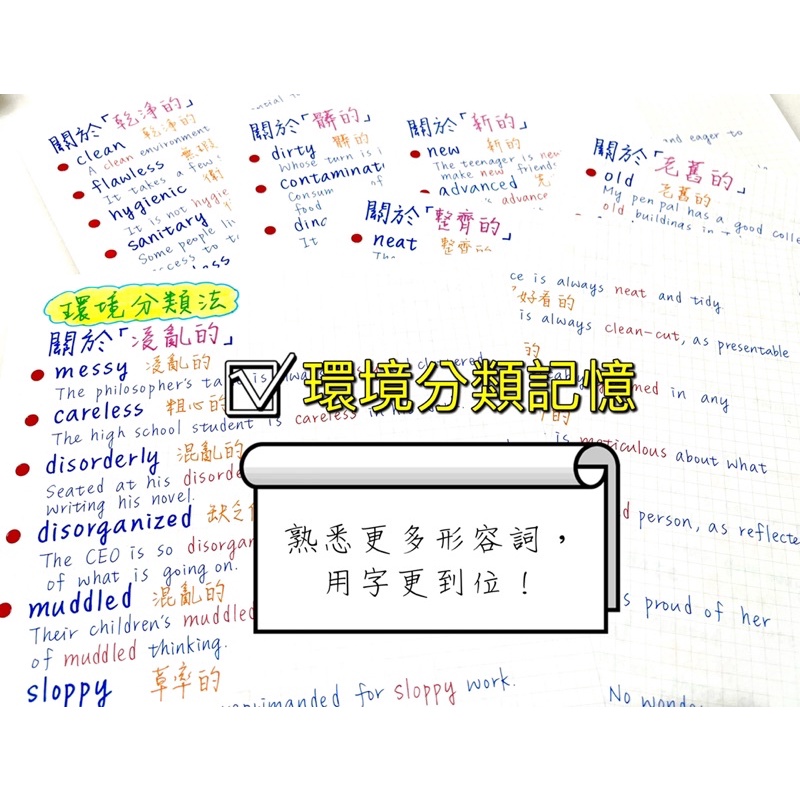 關於「乾淨的」
clean 乾淨的
A clean environment
flawless
It takes a few
hygienic
It is not hygie
sanitary
Some people li
access to t
關於「髒的」
dirty 髒的
Whose turn is
contaminat
Consum of
food
It
關於「新的」
new 新的
The teenager is new
make new friend
advanced 先
advance
關於「整齊的」
neat
and eager to
關於「老舊的」
old 老舊的
My pen pal has a good colle
old buildings in
環境分類法
關於「凌亂的」
messy 凌亂的
The philosopher's ta is alwa cluttered.
careless 粗心的
The high school student is careless in h
disorderly 混亂的
Seated at his disorde
writing his novel.
disorganized 缺乏
The CEO is so disorgan
of what is going on.
muddled 混亂的
Their children's muddled
of muddled thinking.
sloppy 草率的
reprimanded for sloppy work.
ce is always neat and tidy.
好看的
is always clean-cut, as presentable
的
med in any
的
is meticulous about what
d person, as reflecte
s proud of her
No wonde
環境分類記憶
熟悉更多形容詞，
用字更到位！